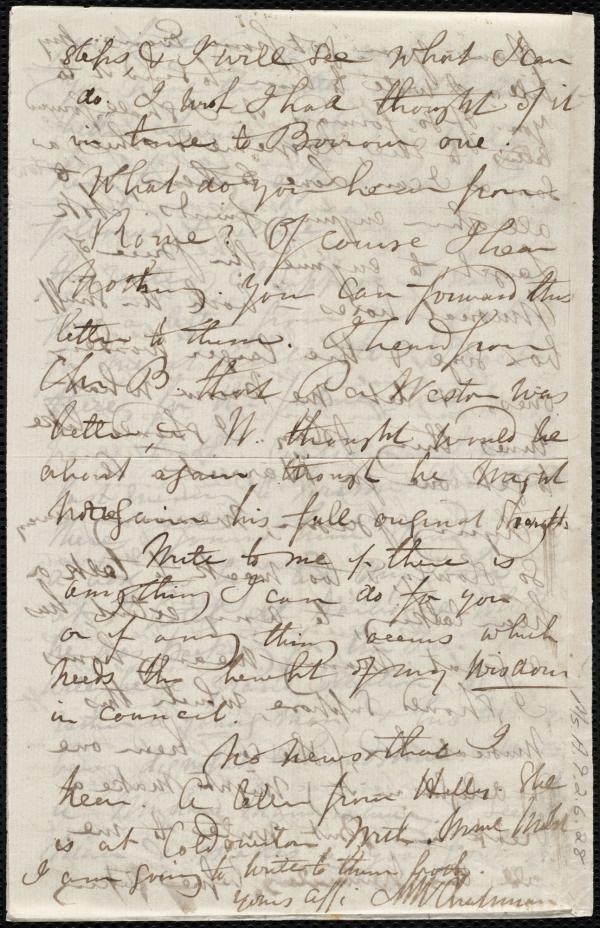 steps & I will see what I can
do. I wish I had thought of it
in time to Borrow one.
What do you hear from
Rome? Of course I hear
nothing. You can forward this
letter to them. I heard from
that Weston was
better, & W. thought would be
about again though he might
not regain his full original strength.
Write to me if there is
anything I can do for you
or if any thing occurs which
needs the benefit of my wisdom
in council.
No news that I
hear. A letter from She
is at with
I am going to write to them
Yours aff: MWChapman
MS A.9.2.6.28